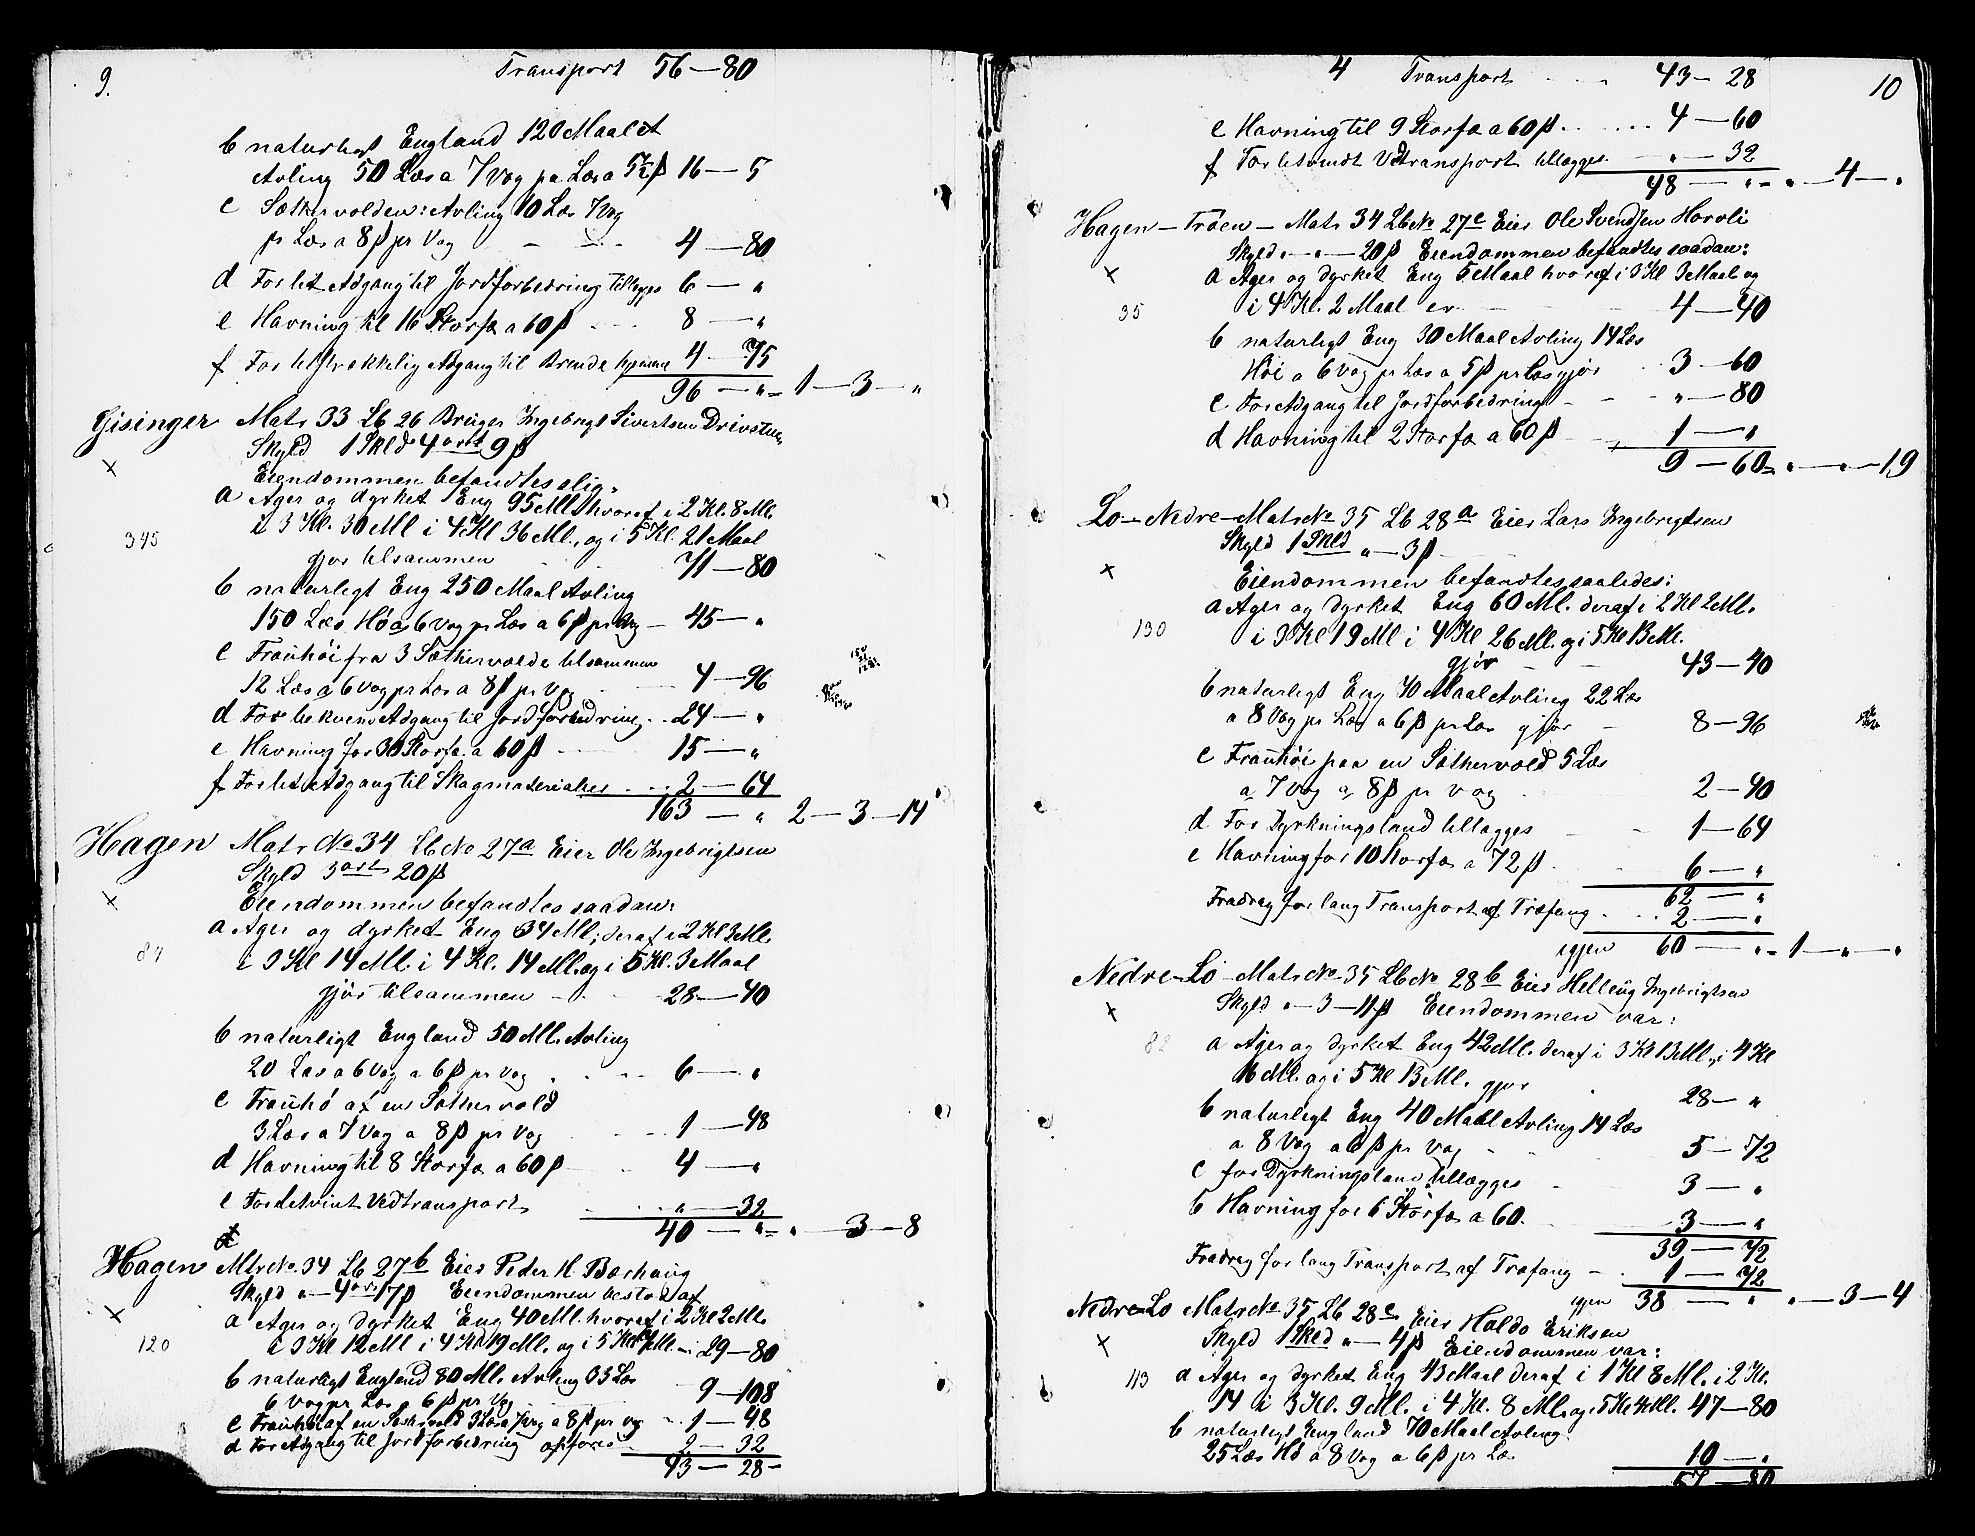 9.
Transport 56 — 80
b naturligt England 120 Maal et
Avling 50 Læs a 7 Vog pa Læs a 5½ β 16 — 5
c Sætter volden: Avling 10 Læs 7 Vog
pr Læs a 8 β pr Vog 4 — 80
d For let Adgang til Jordforbedring tillægges 6 — "
e Havning til 16 Storfæ a 60 β 8 — "
f For tilstrekkelig Adgang til Brende 4 — 75
96 — " = 1 — 3 — "
Gisinger Matr 33 Lb 26 Bruger Ingebregt Sivertsen Drivstuen
Skyld 1 Skld 4 ort 9 β
Eiendommen befandtes slig.
a Ager og dyrket Eng 95 Ml hvoraf i 2 Kl. 8 Ml.
i 3 Kl. 30 Ml i 4 Kl 36 Ml., og i 5 Kl. 21 Maal
345
gjør tilsammen 71 — 80
b naturligt Eng 250 Maal Avling
150 Læs Hø a 6 vog pr Læs a 6 β pr Vog — 45 — "
c Frauhøi fra 3 Sættervolde tilsammen
12 Læs a 6 Vog pr Læs a 8 β pr Vog 4 — 96
d For bekvem Adgang til Jordforbedring 24 — "
e Havning for 30 Storfæ a 60 β 15 — "
f For let Adgang til Skogmaterialier 2 — 64
163 — " 2 — 3 — 14
Hagen Matr No 34 Lb No 27a Eier Ole Ingebrigtsen
Skyld 3 ort 20 β
Eiendommen befandtes saadan:
a Ager og dyrket Eng 34 Ml; deraf i 2 Kl 3 Ml.
84
i 3 Kl 14 Ml. i 4 Kl. 14 Ml. og i 5 Kl. 3 Maal
gjør tilsammen 28 — 40
b naturligt England 50 Ml. Avling
20 Læs a 6 Vog a 6 β pr Vog 6 — "
c Frauhø af en Sættervold
3 Læs a 7 Vog a 8 β pr Vog 1 — 48
d Havning til 8 Storfæ a 60 β 4 — "
e For letvint Vedtransport " — 32
40 — " = " — 3 — 8
Hagen Mtr No. 34 Lb 27b Eier Peder H. Bærhaug
Skyld " — 4 ort 17 β Eiendommen bestod af
a Ager og dyrket Eng 40 Ml. hvoraf i 2 Kl 2 Ml.
120
i 3 Kl 12 Ml i 4 Kl 19 Ml. og i 5 Kl 7 Ml. 29 — 80
b naturligt England 80 Ml. Avling 33 Læs
6 vog pr Læs a 6 β pr Vog 9 — 108
c Frauhø af en Sættervold 3 Læs a 7 Vog a 8 β pr Vog 1 — 48
d For Adgang til Jordforbedring opføres 2 — 32
43 — 28
10
4 Transport 43 — 28
e Havning til 9 Storfæ a 60 β 4 — 60
f For letvindt Vedtransport tillægges " — 32
48 — " = " — 4 — "
Hagen — Trøen — Matr 34 Lb No 27c Eier Ole Svendsen Hovoli
Skyld " — " — 20 β Eiendommen befandtes saadan:
a Ager og dyrket Eng 5 Maal hvoraf i 3 Kl 3 Maal og
35
i 4 Kl. 2 Maal er 4 — 40
b naturligt Eng 30 Maal Avling 14 Læs
Høi a 6 Vog pr Læs a 5 β pr Læs gjør 3 — 60
c For Adgang til Jordforbedring " — 80
d Havning til 2 Storfæ a 60 β 1 — "
9 — 60 = " — " — 19
Lo — Nedre — Matr No 35 Lb 28a Eier Lars Ingebrigtsen
Skyld 1 Skld " — 3 β
Eiendommen befandtes saaledes:
a Ager og dyrket Eng 60 Ml. deraf i 2 Kl 2 Ml.
130
i 3 Kl 19 Ml i 4 Kl 26 Ml. og i 5 Kl 13 Ml.
gjør 43 — 40
b naturligt Eng 70 Maal Avling 22 Læs
a 8 Vog pr Læs a 6 β pr Læs gjør 8 — 96
c Frauhøi paa en Sættervold 5 Læs
a 7 Vog a 8 β pr Vog 2 — 40
d For Dyrkningsland tillægges 1 — 64
e Havning for 10 Storfæ a 72 β 6 — "
62 — "
Fradrag for lang Transport af Træfang 2 — "
igjen 60 — " = 1 — " — "
Nedre — Lo — Matr No 35 Lb No 28b Eier Helleug Ingebrigtsen
Skyld " — 3 — 11 β Eiendommen var:
82
a Ager og dyrket Eng 42 Ml. deraf i 3 Kl 13 Ml., i 4 Kl
16 Ml. og i 5 Kl 13 Ml. gjør 28 — "
b naturligt Eng 40 Maal Avling 14 Læs
a 8 Vog a 6 β pr Vog 5 — 72
c for Dyrkningsland tillægges 3 — "
b Havning for 6 Storfæ a 60. 3 — "
39 — 72
Fradrag for lang Transport af Træfang 1 — 72
igjen 38 — " " — 3 — 4
Nedre — Lo Matr No 35 Lb 28c Eier Haldo Eriksen
Skyld 1 Skld " — 4 β Eiendommen var:
113
a Ager og dyrket Eng 43 Maal deraf i 1 Kl 8 Ml. i 2 Kl.
14 i 3 Kl. 9 Ml. i 4 Kl. 8 Ml. og i 5 Kl 4 Ml. 47 — 80
b naturligt England 70 Maal Avling
25 Læs Hø a 8 Vog a 6 β pr Læs 10 — "
57 — 80